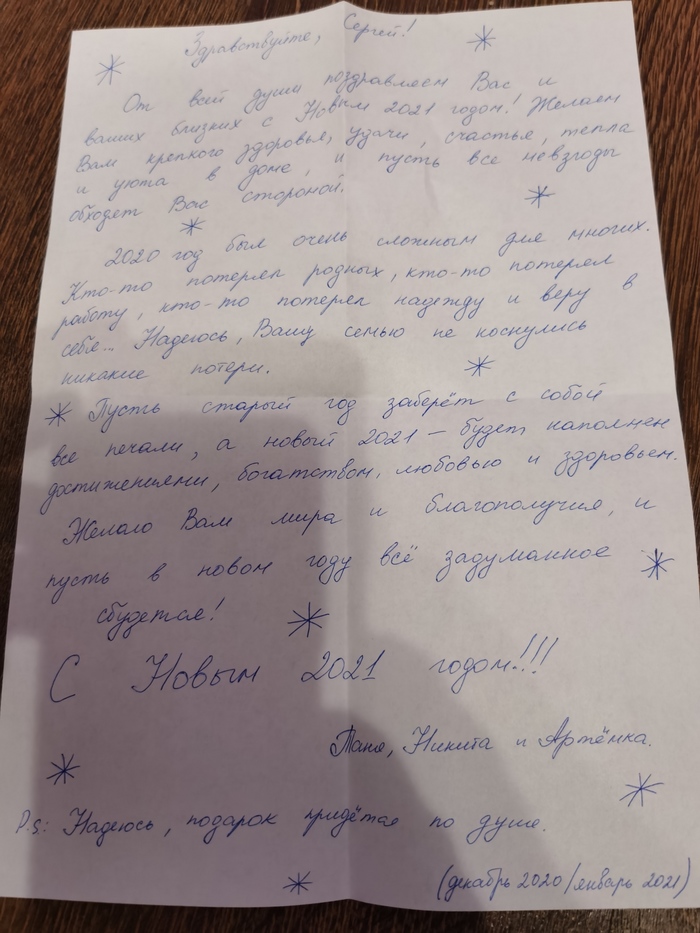 Здравствуйте, Сергей!
От всей души поздравляем Вас и
ваших близких с Новым 2021 годом! Желаем
Вам крепкого здоровья, удачи, счастья, тепла
и уюта в доме, и пусть все невзгоды
обходят Вас стороной.
2020 год был очень сложным для многих.
Кто-то потерял родных, кто-то потерял
работу, кто-то потерял надежду и веру в
себя... Надеюсь, Вашу семью не коснулись
никакие потери.
Пусть старый год заберёт с собой
все печали, а новый 2021 — будет наполнен
достижениями, богатством, любовью и здоровьем.
Желаю Вам мира и благополучия, и
пусть в новом году всё задуманное
сбудется!
С Новым 2021 годом!!!
Таня, Никита и Артёмка.
P.s: Надеюсь, подарок придётся по душе.
(декабрь 2020/январь 2021)